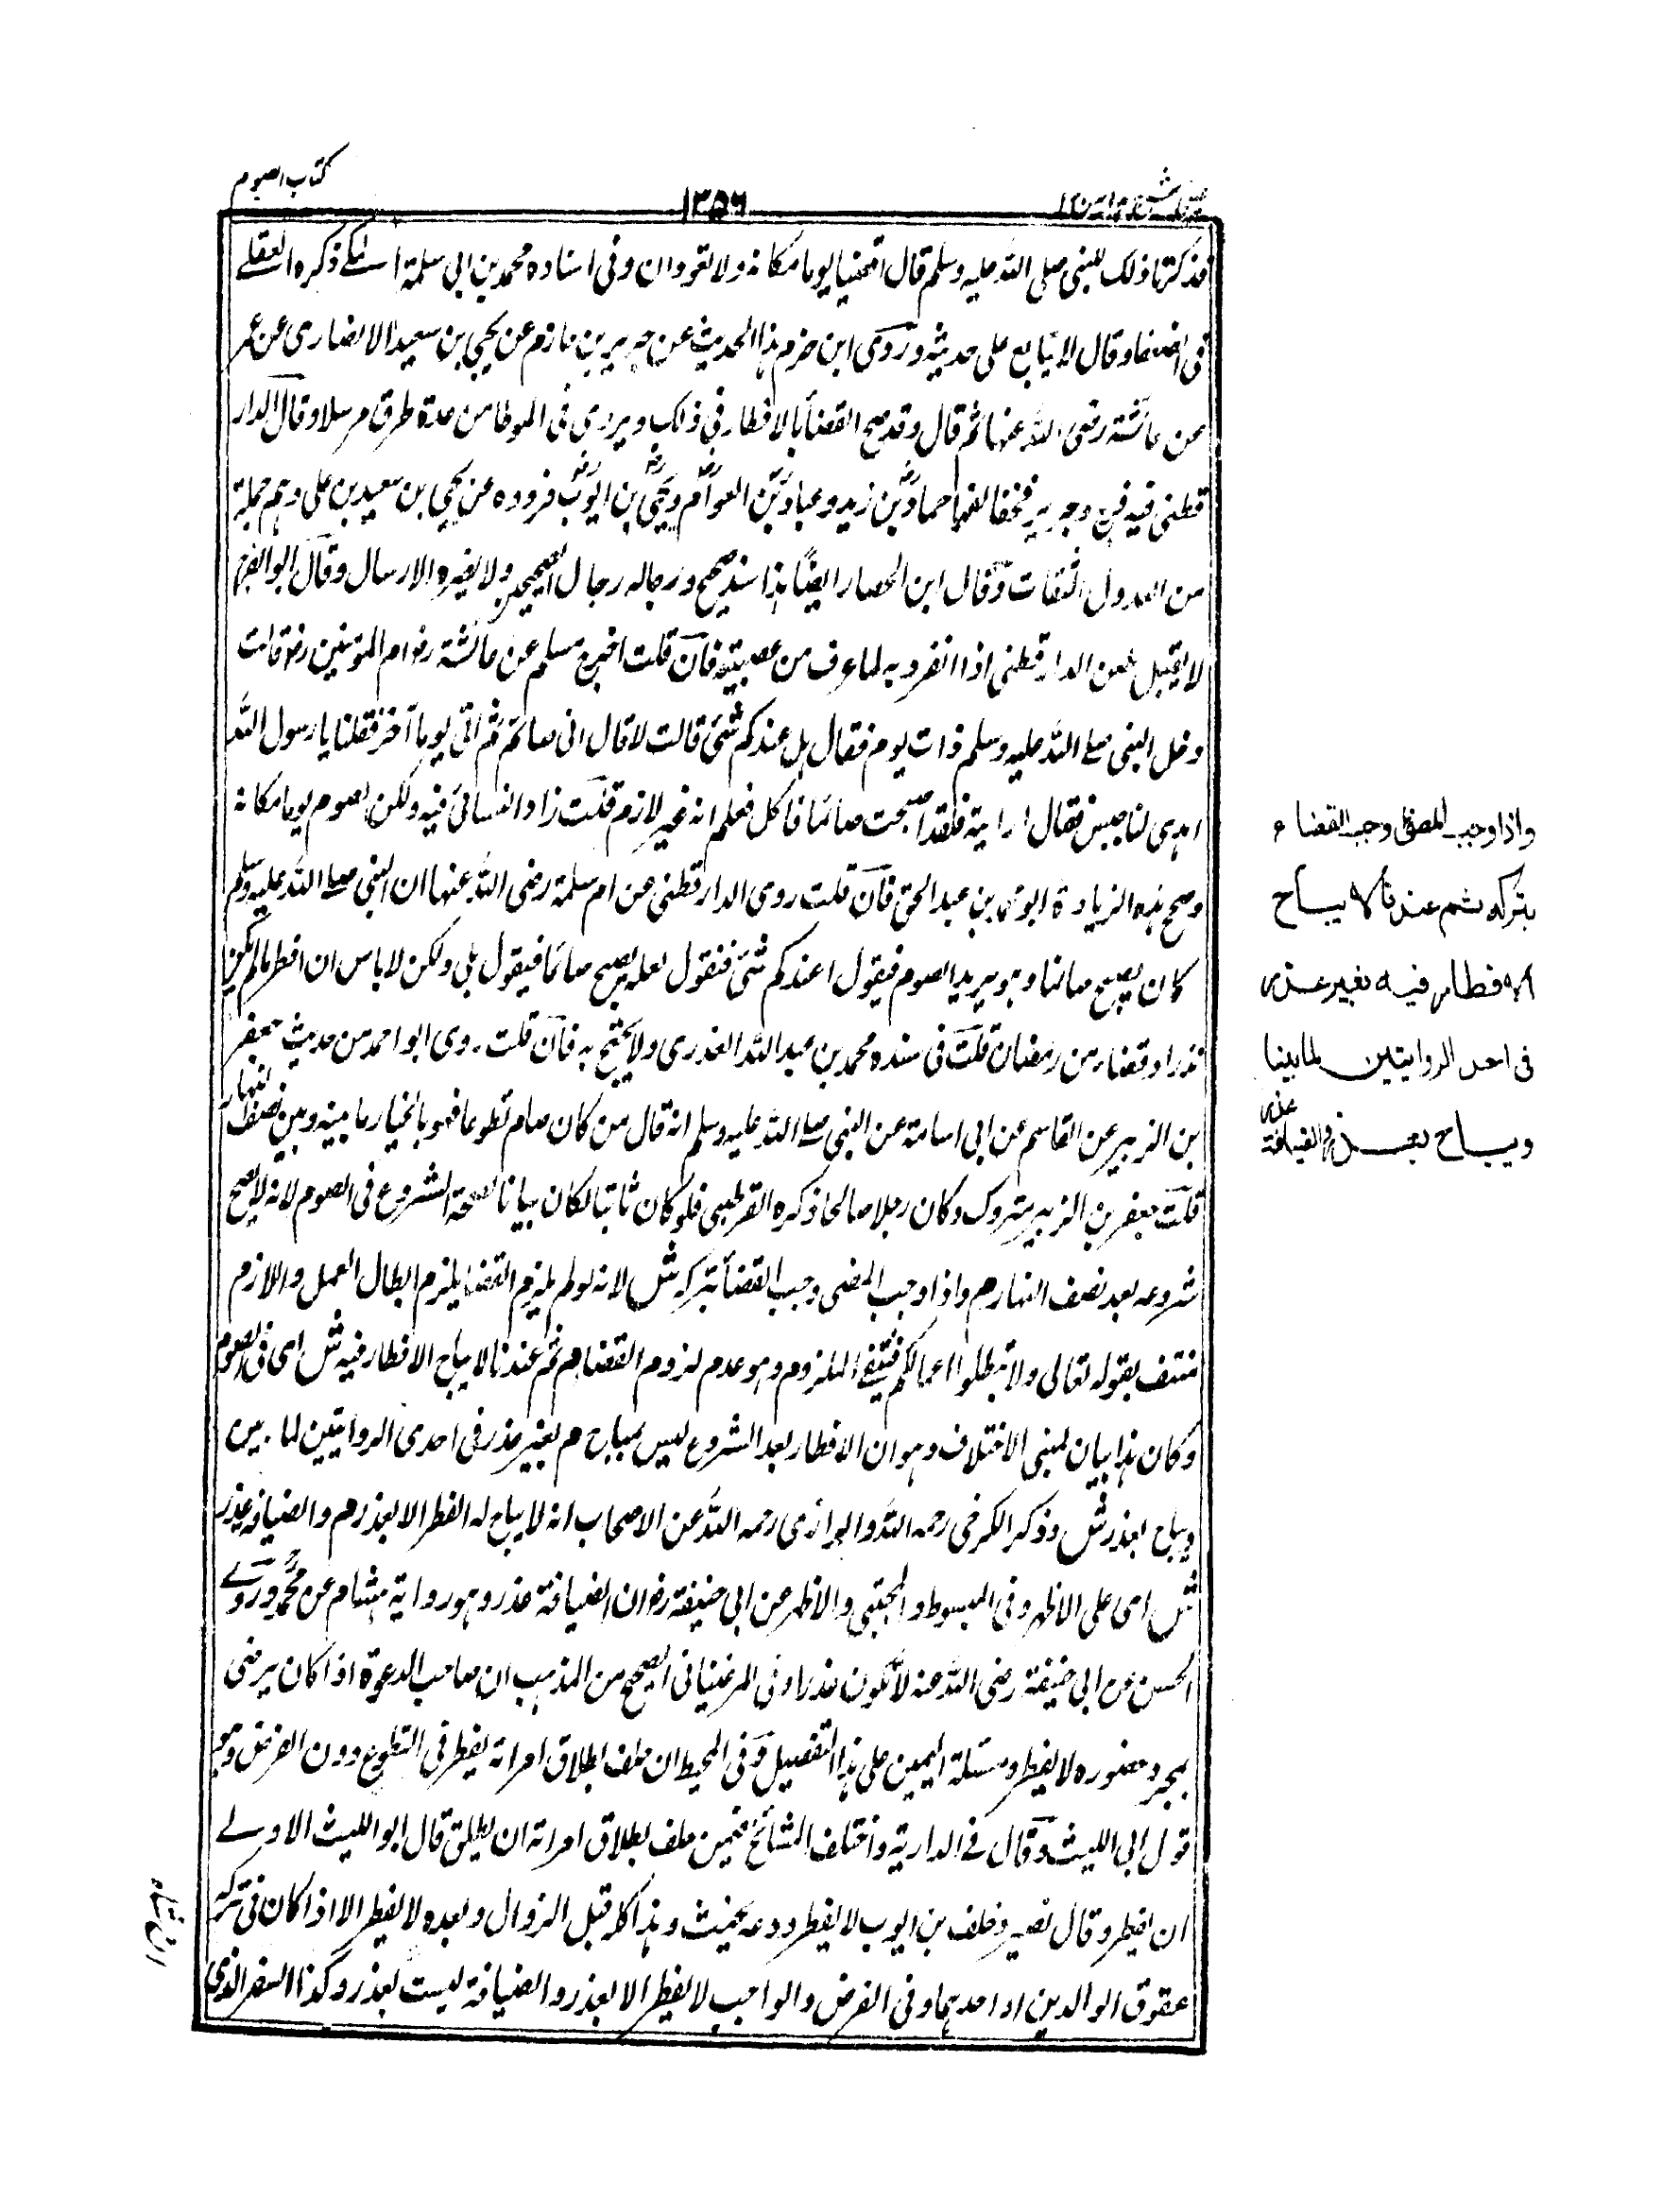 كتاب الصوم
١٣٥٦
فذكرتا ذلك للنبى صلى الله عليه وسلم قال اقضيا يوما مكانه ولا تعودان وفى اسناده محمد بن ابى سلمة المكى ذكره العقيلے
فى الضعفا وقال لا يتابع على حديثه وروى ابن حزم هذا الحديث عن جرير بن حازم عن يحيى بن سعيد الانصارى عن عمرة
عن عائشة رضى الله عنها ثم قال وقد صح القضأ بالافطار فى ذلك ويروى فى الموطا من عدة طرق مرسلا وقال الدار
قطنى فيه فرج وجرير فخفا لفهما حماد بن زيد وعباد بن العوام ويحيى بن ايوب فرووه عن يحيى بن سعيد بن على وهم جملة
من العدول الثقات وقال ابن الحصار ايضا هذا سند صحيح ورجاله رجال الصحيحين ولا يضره الارسال وقال ابو الفرج
لا يقبل طعن الدارقطنى اذا انفرد به لما عرف من عصبيته فان قلت اخرج مسلم عن عائشة رض ام المؤمنين رض قالت
دخل النبى صلے الله عليه وسلم ذات يوم فقال هل عندكم شئ قالت لا قال انى صائم ثم اتى يوما آخر فقلنا يا رسول الله
اهدى لنا حيس فقال ارايته فلقد اصبحت صائما فاكل فعلم انه غير لازم قلت زاد النسائى فيه ولكن اصوم يوما مكانه
وصح هذه الزيادة ابو محمد بن عبد الحق فان قلت روى الدارقطنى عن ام سلمة رضى الله عنها ان النبى صلے الله عليه وسلم
كان يصبح صائما وهو يريد الصوم فيقول اعندكم شئ فنقول لعله يصبح صائما فيقول بلى ولكن لا باس ان افطر ما لم يكن
نذرا وقضاء من رمضان قلت فى سنده محمد بن عبد الله العذرى ولا يحتج به فان قلت روى ابو احمد من حديث جعفر
بن الزبير عن القاسم عن ابى اسامة عن النبى صلے الله عليه وسلم انه قال من كان صام تطوعا فهو بالخيار ما بينه وبين نصف النهار
قلت جعفر بن الزبير متروك وكان رجلا صالحا ذكره القرطبى فلو كان ثابتا لكان بيانا لصحة الشروع فى الصوم لانه لا يصح
شروعه بعد نصف النهار م واذا وجب المضى وجب القضأ بتركه ش لانه لو لم يلزم القضا يلزم ابطال العمل واللازم
منتف بقوله تعالى ولا تبطلوا اعمالكم فينتفى الملزوم وهو عدم لزوم القضا م ثم عندنا لا يباح الافطار فيه ش اى فى الصوم
وكان هذا بيان لمبنى الاختلاف وهو ان الافطار بعد الشروع ليس بمباح م بغير عذر فى احدى الروايتين لما بين
ويباح بعذر ش وذكر الكرخى رحمه الله والرازى رحمه الله عن الاصحاب انه لا يباح له الفطر الا بعذر م والضيافة عذر
ش اى على الاظهر وفى المبسوط والمجتبى والاظهر عن ابى حنيفة رض ان الضيافة عذر وهو رواية هشام عن محمد وروے
الحسن عن ابى حنيفة رضى الله عنه لا تكون عذرا وفى المرغينانى الصحيح من المذهب ان صاحب الدعوة اذا كان يرضى
بمجرد حضوره لا يفطر ومسئلة اليمين على هذا التفصيل وفى المحيط ان حلف بطلاق امراته يفطر فى التطوع دون الفرض وهو
قول ابى الليث وقال فے الدراية واختلف المشائخ فيمن حلف بطلاق امراته ان يطلق قال ابو الليث الاولے
ان يفطر وقال نصير وخلف بن ايوب لا يفطر ودعه يحنث وهذا كله قبل الزوال وبعده لا يفطر الا اذا كان فى تركه
عقوق الوالدين او احدهما وفى الفرض والواجب لا يفطر الا بعذر والضيافة ليست بعذر وكذا السفر الذى
واذا وجب المضى وجب القضاء
بتركه ثم عندنا لا يباح
الافطار فيه بغير عذر
فى احد الروايتين لما بينا
ويباح بعذر والضيافة عذر